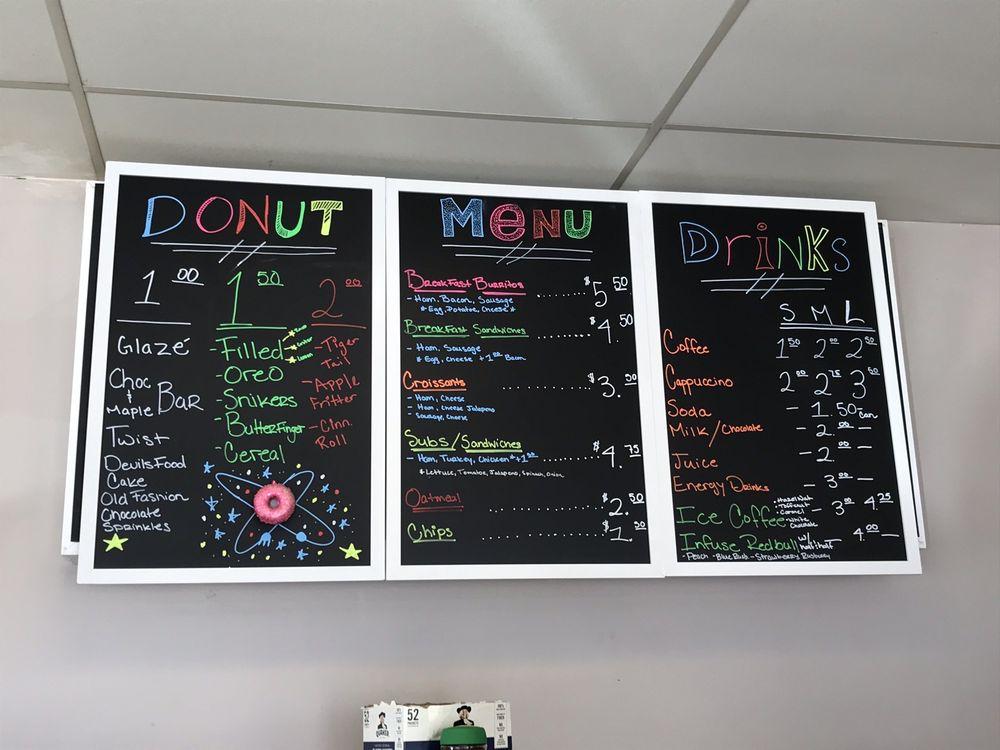 DONUT
1 00
Glazé
Choc
+
Maple Bar
Twist
DevilsFood
Cake
Old Fashion
Chocolate
Sprinkles
1 50
-Filled
-Oreo
-Snikers
-Butterfinger
-Cereal
2 00
-Tiger
Tail
-Apple
Fritter
-Cinn.
Roll
Menu
Breakfast Burritos ........ $5.50
-Ham, Bacon, Sausage
* Egg, Potatoe, Cheese *
Breakfast Sandwiches ....... $4.50
- Ham, Sausage
* Egg, Cheese +1.00 Bacon
Croissants ............ $3.50
-Ham, Cheese
-Ham, Cheese Jalapeno
-Sausage, Cheese
Subs/Sandwiches ......... $4.75
-Ham, Turkey, Chicken*+1.00
* Lettuce, Tomatoe, Jalapeno, Spinach, Onion
Oatmeal ............... $2.50
Chips ................ $1.50
Drinks
S M L
Coffee 1 50 2 00 2 50
Cappuccino 2 00 2 75 3 50
Soda - 1.50 can
Milk/Chocolate - 2.00 -
Juice - 2 00 -
Energy Drinks - 3 00 -
Ice Coffee - 3 00 4.25
·Hazelnut
·Toffenut
·Caramel
·White
Chocolate
Infuse Redbull w/ 4 00 -
-Peach -Blue Rasb -Strawberry
52
QUAKER